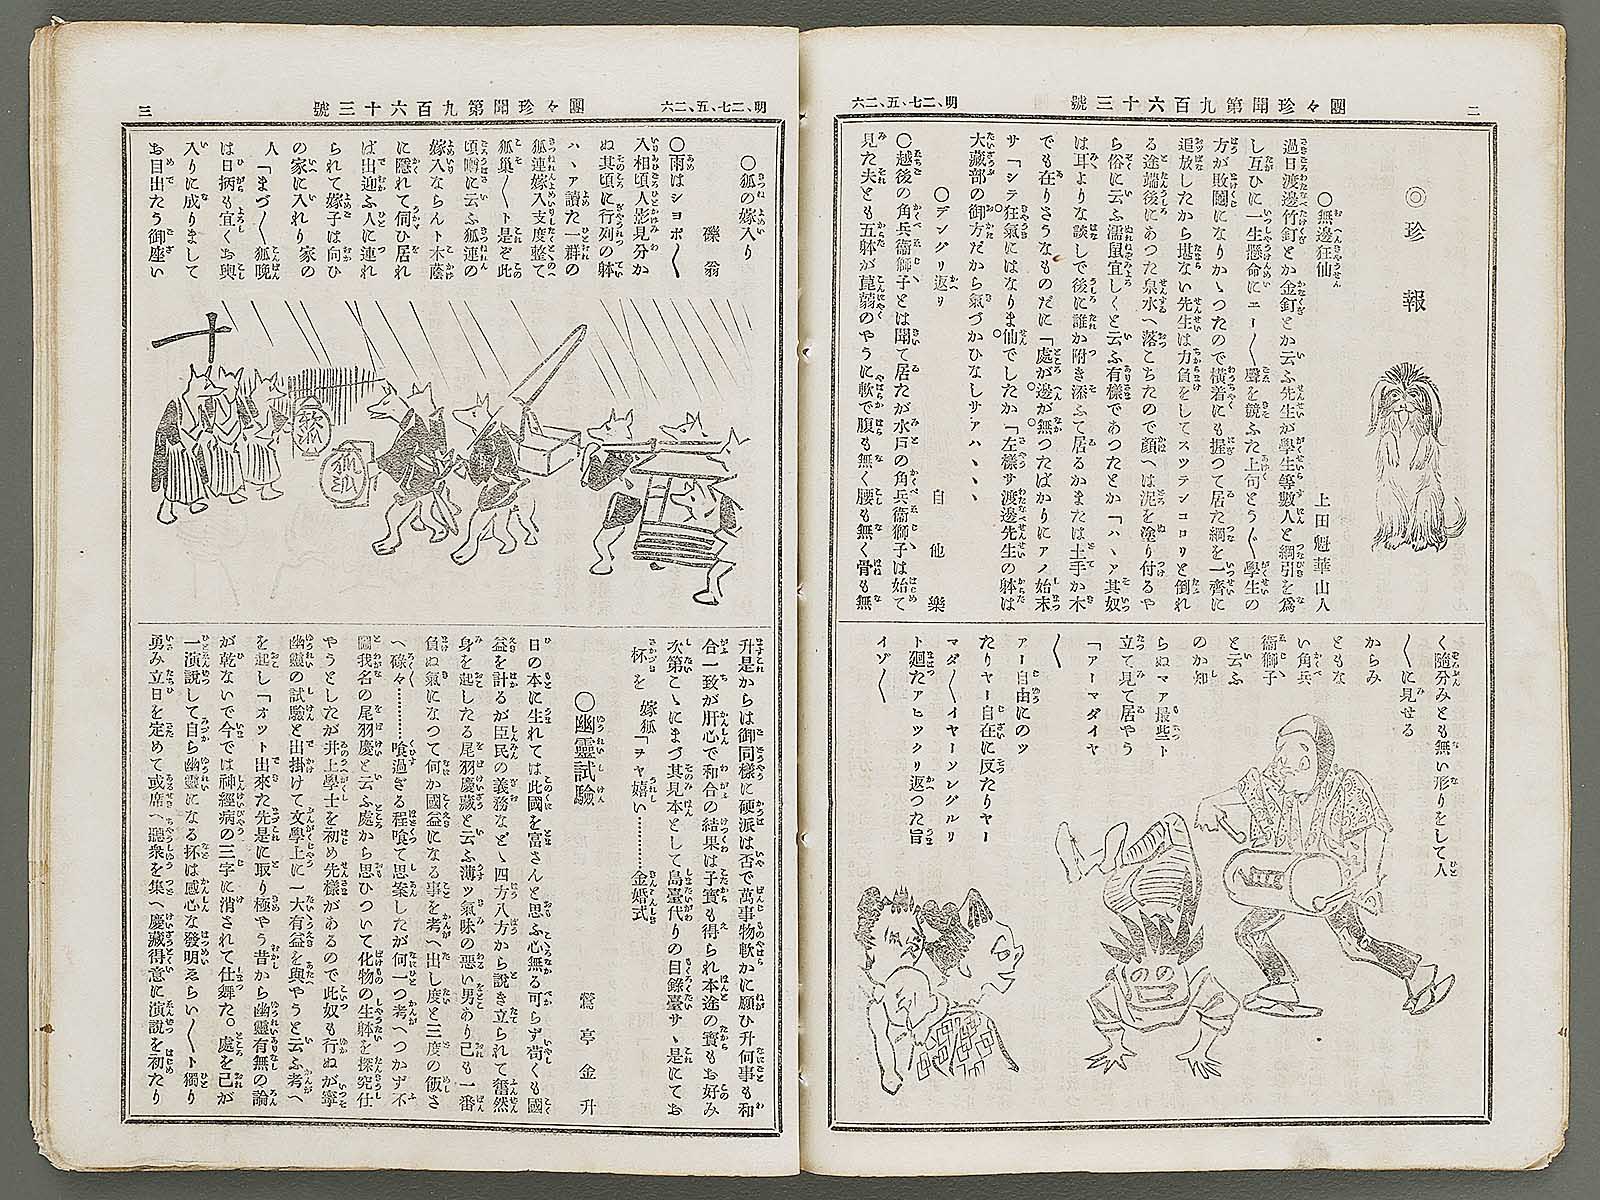 二
團々珍聞第九百六十三號
明、二七、五、二六
◎珍報
○無邊狂仙
上田魁華山人
過日渡邊竹釘とか金釘とか云ふ先生が學生等數人と綱引を爲
し互ひに一生懸命にエー〱聲を競ふた上句とう〱學生の
方が敗鬪になりかゝつたので横着にも握つて居た綱を一齊に
追放したから堪ない先生は力負をしてスツテンコロリと倒れ
る途端後にあつた泉水へ落こちたので顏へは泥を塗り付るや
ら俗に云ふ濡鼠宜しくと云ふ有樣であつたとか「ハヽア其奴
は耳よりな談しで後に誰か附き添ふて居るかまたは土手か木
でも在りさうなものだに「處が邊が無つたばかりにアノ始末
サ「シテ狂氣にはなりま仙でしたか「左樣サ渡邊先生の躰は
大藏部の御方だから氣づかひなしサアハヽヽヽ
○デングリ返り
自他樂
○越後の角兵衞獅子とは聞て居たが水戸の角兵衞獅子は始て
見た夫とも五躰が菎蒻のやうに軟で腹も無く腰も無く骨も無
く隨分みとも無い形りをして人
〱に見せる
からみ
ともな
い角兵
衞獅子
と云ふ
のか知
らぬマア最些ト
立て見て居やう
「アーマダイヤ
〱
アー自由にのツ
たりヤー自在に反たりヤー
マダ〱イヤーソングルリ
ト廻たアヒツクリ返つた旨
イゾ〱
明、二七、五、二六
團々珍聞第九百六十三號
三
○狐の嫁入り
礫翁
○雨はシヨボ〱
入相頃人影見分か
ぬ其頃に行列の躰
ハヽア讀た一群の
狐連嫁入支度整て
狐巢〱ト是ぞ此
頃噂に云ふ狐連の
嫁入ならんト木蔭
に隱れて伺ひ居れ
ば出迎ふ人に連れ
られて嫁子は向ひ
の家に入れり 家の
人「まづ〱狐晩
は日柄も宜くお輿
入りに成りまして
お目出たう御座い
升是からは御同樣に硬派は否で萬事物軟かに願ひ升何事も和
合一致が肝心で和合の結果は子寳も得られ本途の寳もお好み
次第こゝにまづ其見本として島臺代りの目錄臺サヽ是にてお
杯を 嫁狐「ヲヤ嬉い………金婚式
○幽靈試驗
鶯亭金升
日の本に生れては此國を富さんと思ふ心無る可らず苟くも國
益を計るが臣民の義務などゝ四方八方から說き立られて奮然
身を起したる尾羽慶藏と云ふ薄ッ氣味の惡い男あり己も一番
負ぬ氣になつて何か國益になる事を考へ出し度と三度の飯さ
へ碌々………喰過ぎる程喰て思案したが何一つ考へつかず不
圖我名の尾羽慶と云ふ處から思ひついて化物の生躰を探究仕
やうとしたが井上學士を初め先樣があるので此奴も行ぬが寧
幽靈の試驗と出掛けて文學上に一大有益を與やうと云ふ考へ
を起し「オット出來た先是に取り極やう昔から幽靈有無の論
が乾ないで今では神經病の三字に消されて仕舞た。處を己が
一演說して自ら幽靈になる抔は感心な發明ゑらい〱ト獨り
勇み立日を定めて或席へ聽衆を集へ慶藏得意に演說を初たり